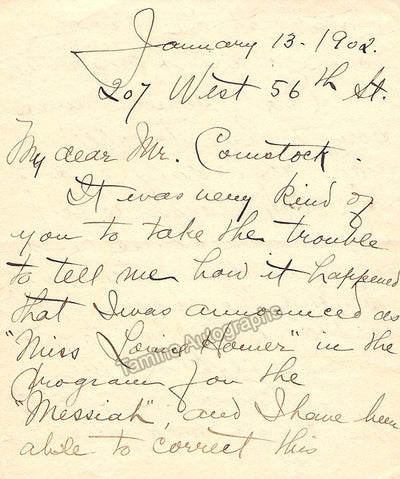 January 13 - 1902.
207 West 56th St.
My dear Mr. Comstock.
It was very kind of
you to take the trouble
to tell me how it happened
that I was announced as
"Miss Louise Homer" in the
Tamino Autographs
program for the
"Messiah", and I have been
able to correct this